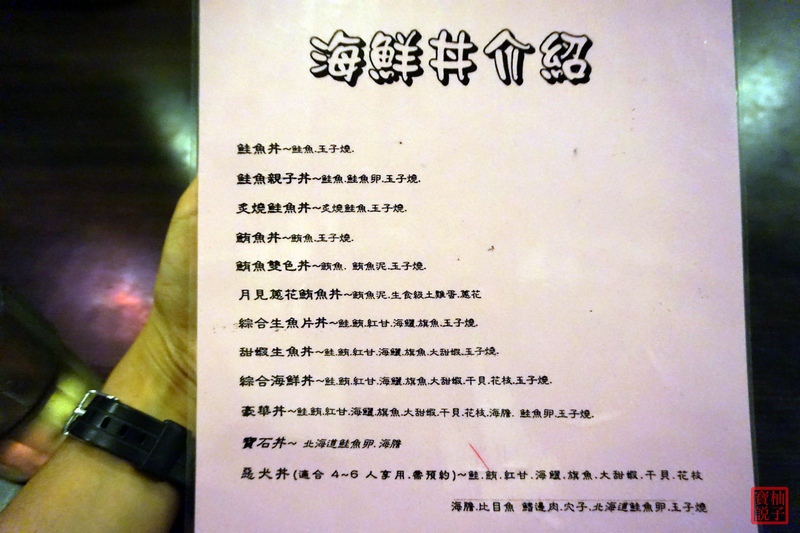 海鮮丼介紹
鮭魚丼~鮭魚.玉子燒.
鮭魚親子丼~鮭魚.鮭魚卵.玉子燒.
炙燒鮭魚丼~炙燒鮭魚.玉子燒.
鮪魚丼~鮪魚.玉子燒.
鮪魚雙色丼~鮪魚. 鮪魚泥.玉子燒.
月見蔥花鮪魚丼~鮪魚泥.生食級土雞蛋.蔥花
綜合生魚片丼~鮭.鮪.紅甘.海鱺.旗魚.玉子燒.
甜蝦生魚丼~鮭.鮪.紅甘.海鱺.旗魚.大甜蝦.玉子燒.
綜合海鮮丼~鮭.鮪.紅甘.海鱺.旗魚.大甜蝦.干貝.花枝.玉子燒.
豪華丼~鮭.鮪.紅甘.海鱺.旗魚.大甜蝦.干貝.花枝.海膽. 鮭魚卵.玉子燒.
寶石丼~ 北海道鮭魚卵.海膽
惡犬丼(適合 4~6 人享用.需預約)~鮭.鮪.紅甘.海鱺.旗魚.大甜蝦.干貝.花枝
海膽.比目魚 鰭邊肉.穴子.北海道鮭魚卵.玉子燒
柚子
寶說